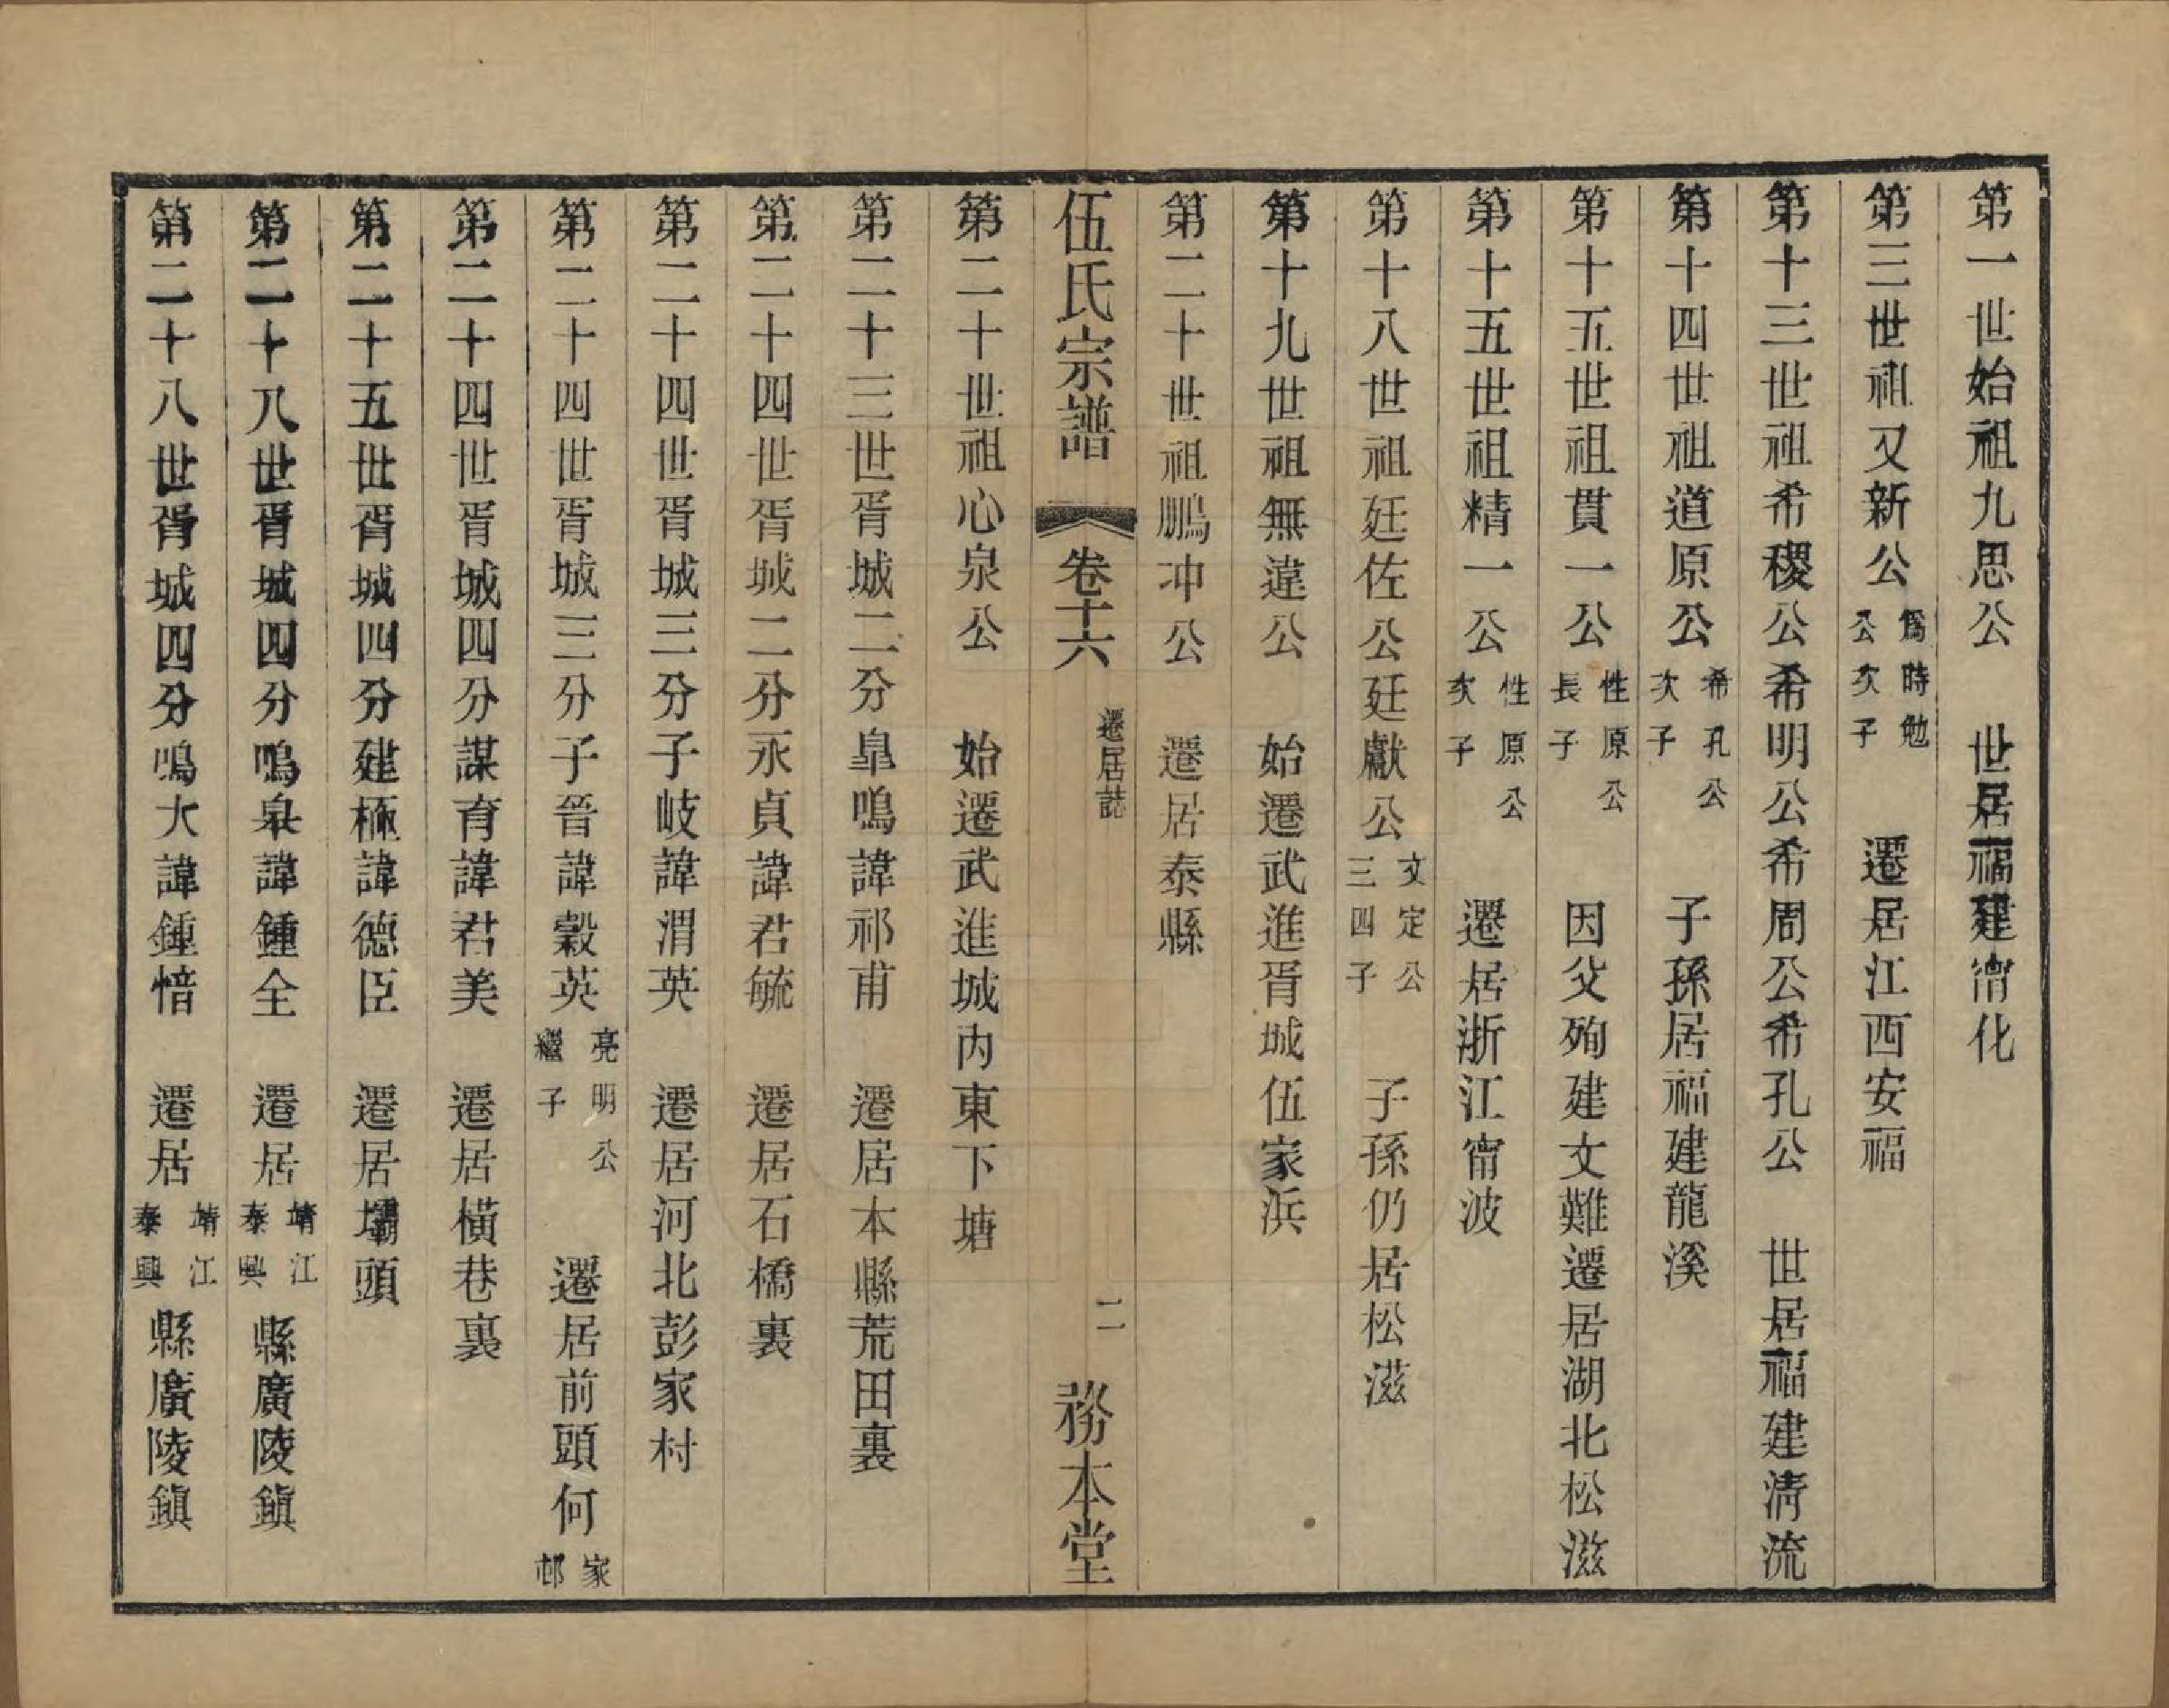 第一世始祖九思公　世居福建甯化
第三世祖又新公爲時勉公次子　遷居江西安福
第十三世祖希稷公希明公希周公希孔公　世居福建清流
第十四世祖道原公希孔公次子　子孫居福建龍溪
第十五世祖貫一公性原公長子　因父殉建文難遷居湖北松滋
第十五世祖精一公性原公次子　遷居浙江甯波
第十八世祖廷佐公廷獻公文定公三四子　子孫仍居松滋
第十九世祖無違公　始遷武進胥城伍家浜
第二十世祖鵬冲公　遷居泰縣
伍氏宗譜　卷十六　遷居誌　二　務本堂
第二十世祖心泉公　始遷武進城内東下塘
第二十三世胥城二分臯鳴諱祁甫　遷居本縣荒田裏
第二十四世胥城二分永貞諱君毓　遷居石橋裏
第二十四世胥城三分子岐諱渭英　遷居河北彭家村
第二十四世胥城三分子晉諱穀英亮明公繼子　遷居前頭何家邨
第二十四世胥城四分謀育諱君美　遷居橫巷裏
第二十五世胥城四分建極諱德臣　遷居壩頭
第二十八世胥城四分鳴皋諱鍾全　遷居靖江泰興縣廣陵鎭
第二十八世胥城四分鳴大諱鍾愔　遷居靖江泰興縣廣陵鎭